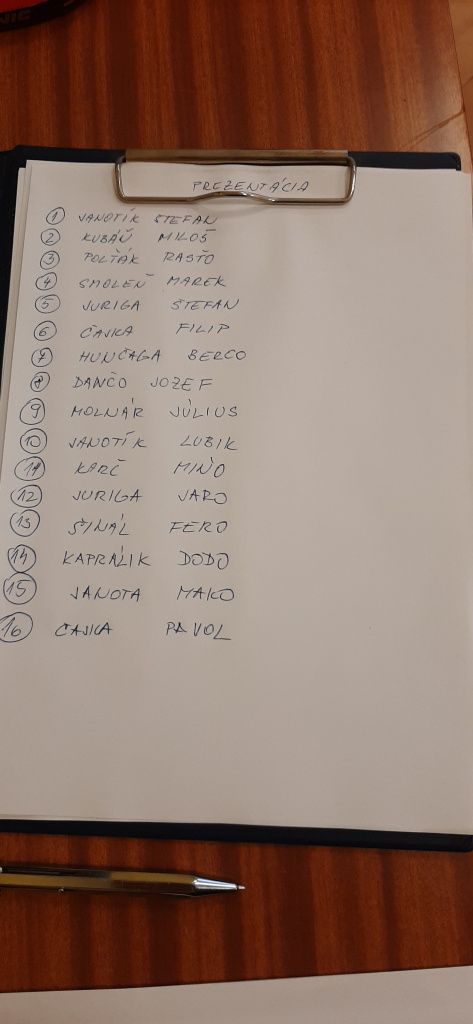 PREZENTÁCIA
1 JANOTÍK ŠTEFAN
2 KUBÁŇ MILOŠ
3 POLŤÁK RASŤO
4 SMOLEŇ MAREK
5 JURIGA ŠTEFAN
6 ČAJKA FILIP
7 HUNČAGA BERCO
8 DANČO JOZEF
9 MOLNÁR JÚLIUS
10 JANOTÍK LUBIK
11 KARČ MIŇO
12 JURIGA JARO
13 ŠINÁL FERO
14 KAPRÁLIK DODO
15 JANOTA MAKO
16 ČAJKA PAVOL